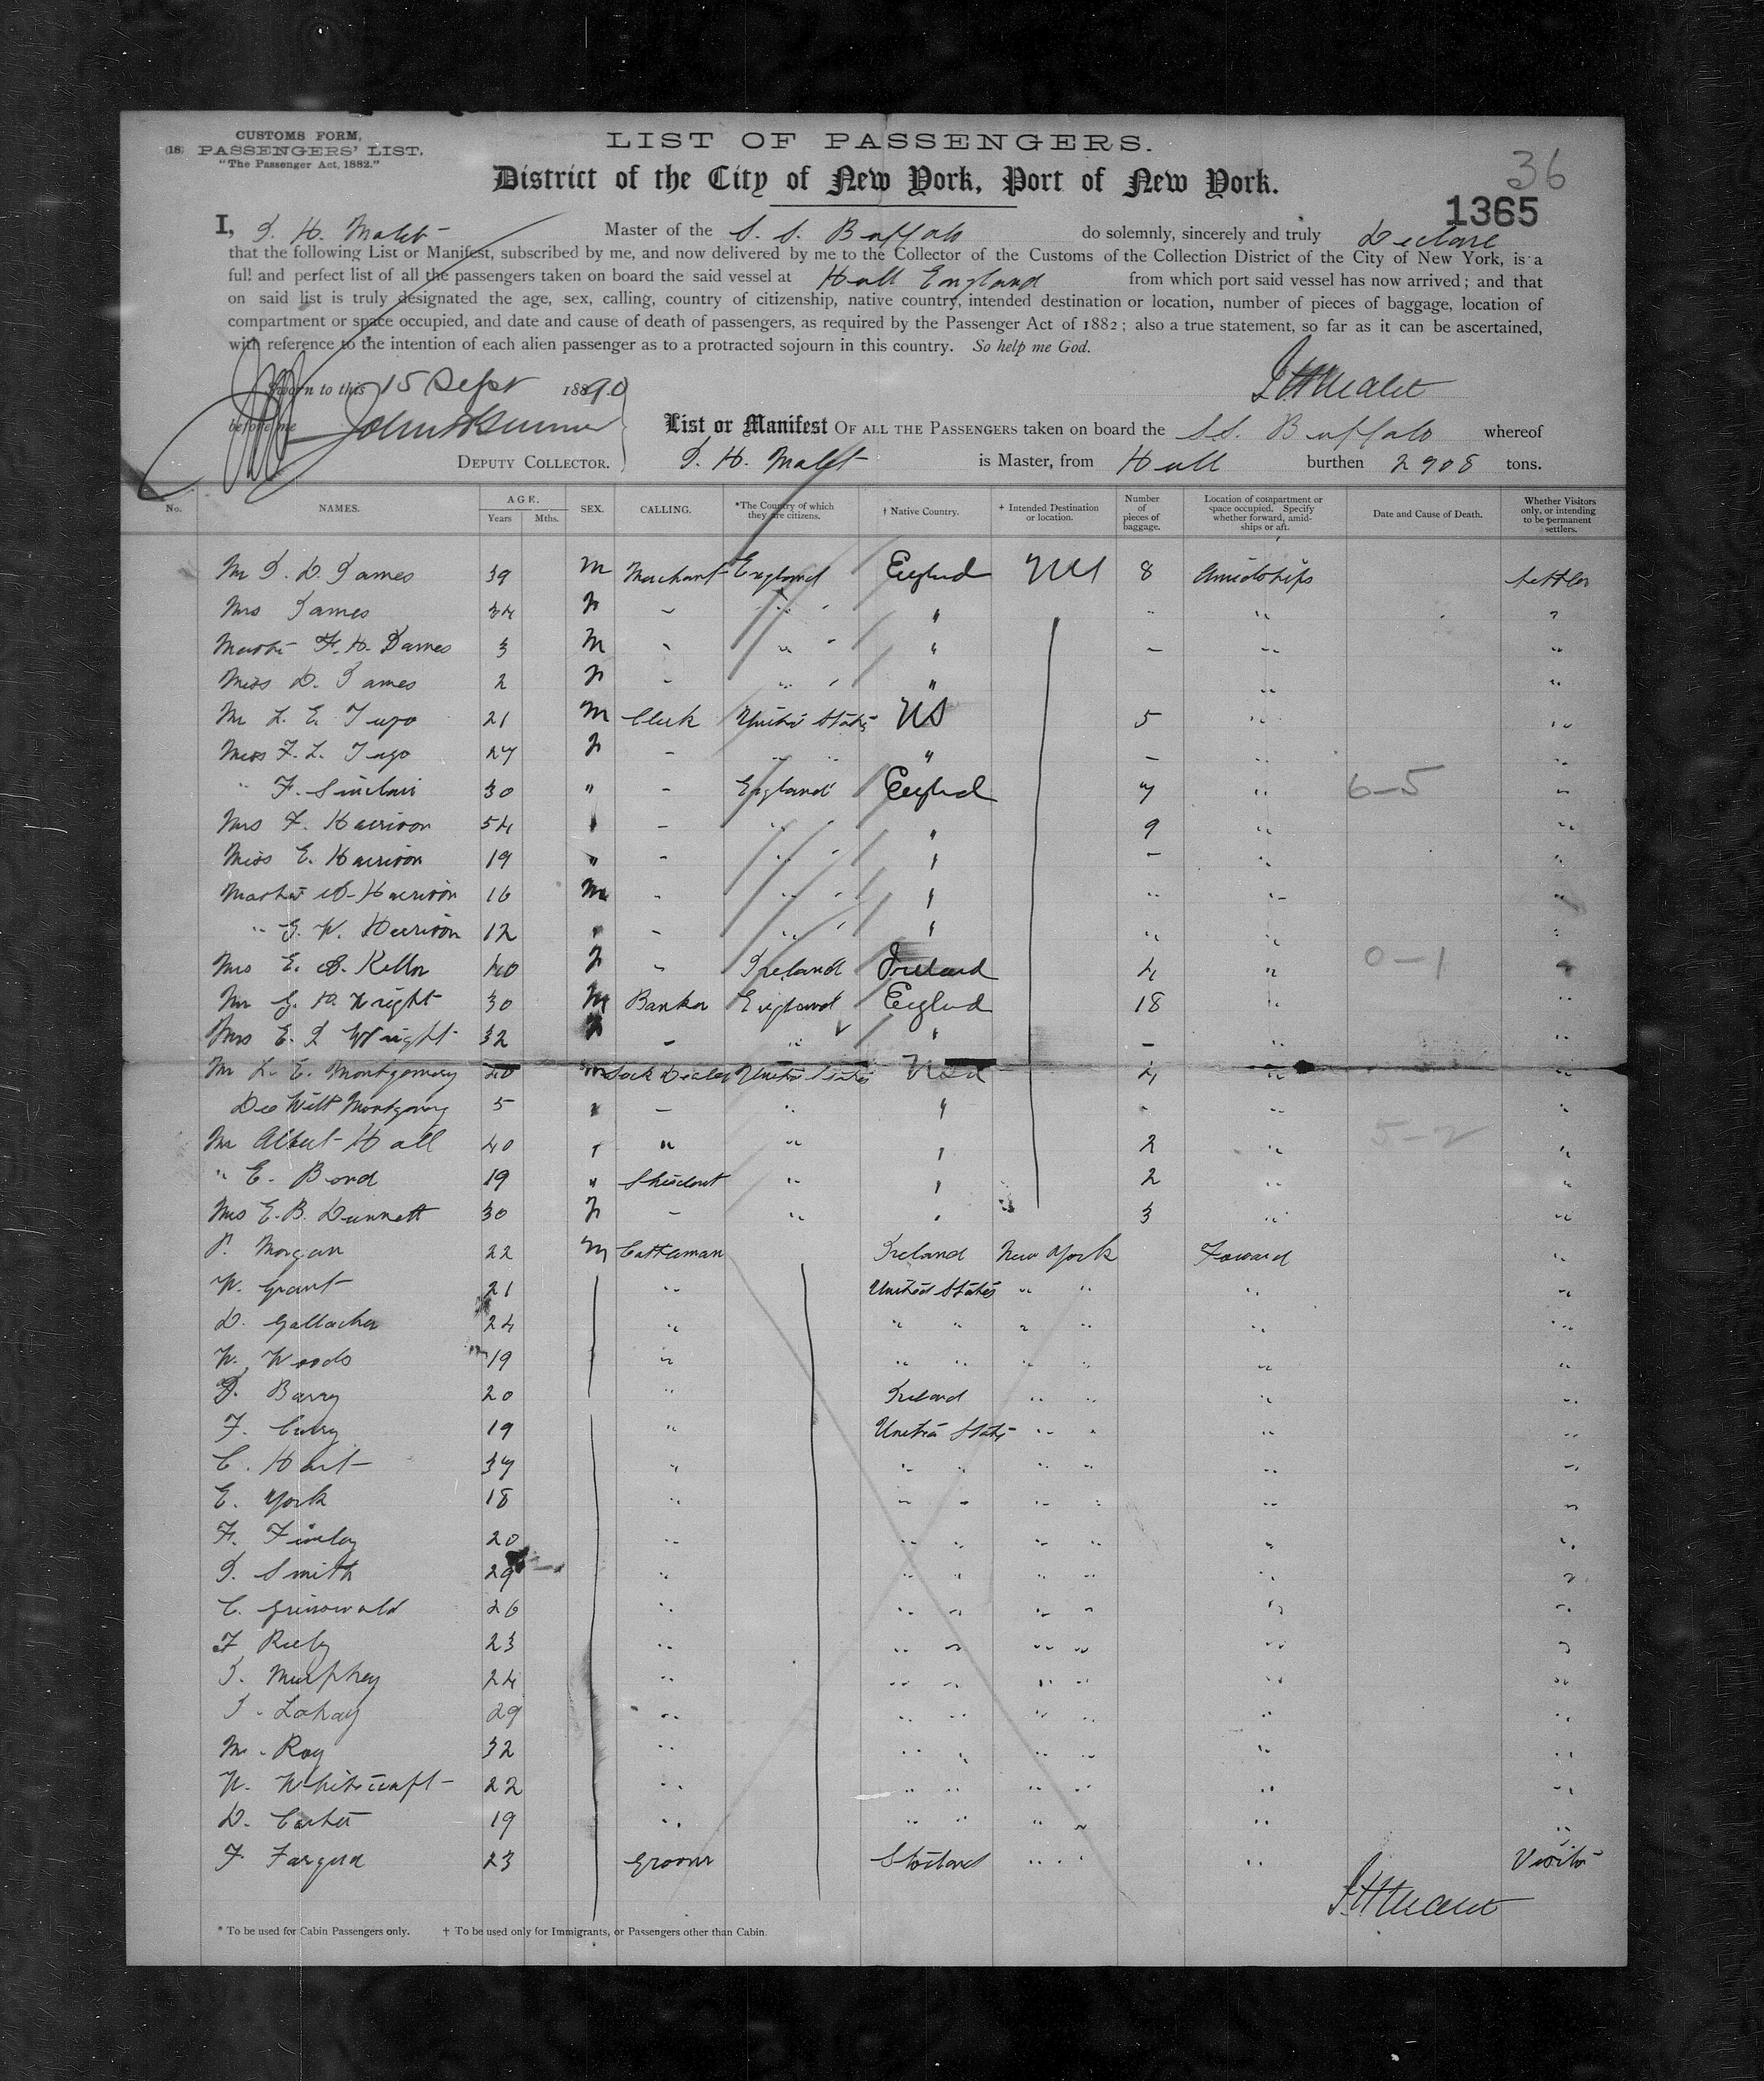 CUSTOMS FORM,
(18) PASSENGERS' LIST.
"The Passenger Act, 1882."
LIST OF PASSENGERS.
District of the City of New York, Port of New York.
36
1365
I, J. H. Malet Master of the S. S. Buffalo do solemnly, sincerely and truly Declare
that the following List or Manifest, subscribed by me, and now delivered by me to the Collector of the Customs of the Collection District of the City of New York, is a
full and perfect list of all the passengers taken on board the said vessel at Hull England from which port said vessel has now arrived; and that
on said list is truly designated the age, sex, calling, country of citizenship, native country, intended destination or location, number of pieces of baggage, location of
compartment or space occupied, and date and cause of death of passengers, as required by the Passenger Act of 1882; also a true statement, so far as it can be ascertained,
with reference to the intention of each alien passenger as to a protracted sojourn in this country. So help me God.
Sworn to this 15 Sept 1890
J H Malet
before me
DEPUTY COLLECTOR.
List or Manifest OF ALL THE PASSENGERS taken on board the S.S. Buffalo whereof
J. H. Malet is Master, from Hull burthen 2908 tons.
No. NAMES. AGE. Years Mths. SEX. CALLING. *The Country of which they are citizens. † Native Country. † Intended Destination or location. Number of pieces of baggage. Location of compartment or space occupied. Specify whether forward, amidships or aft. Date and Cause of Death. Whether Visitors only, or intending to be permanent settlers.
Mr J. D. James 39 M Merchant England England 8 Amidships Settler
Mrs James 34 F - " " " "
Master F. H. James 3 M - " " - " "
Miss D. James 2 F - " " " "
Mr L. E. 21 M Clerk United States US 5 " "
Miss F. L. 27 F - " " - " "
" F. Sinclair 30 " - England England 7 " 6-5 "
Mrs F. Harrison 54 " - " " 9 " "
Miss E. Harrison 19 " - " " - " "
Master Harrison 16 M - " " " " "
" G. W. Harrison 12 " - " " " " "
Mrs E. 40 F - Ireland Ireland 4 " 0-1 "
Mr G. H. Wright 30 M Banker England England 18 " "
Mrs E. J Wright 32 F - " " - " "
Mr L. E. Montgomery 20 M Dealer United States USA 4 " "
De Witt Montgomery 5 " - " " " "
Mr Albert Hall 40 " " " " 2 " 5-2 "
" E. Bond 19 " Student " " 2 " "
Mrs E. B. Dunnett 30 F - " " 3 " "
P. Morgan 22 M Cattleman Ireland New York Forward "
W. Grant 21 " United States " " " "
D. Gallacher 24 " " " " " " "
W. Woods 19 " " " " " " "
J. Barry 20 " Ireland " " " "
F. 19 " United States " " " "
C. Hart 37 " " " " " " "
E. York 18 " " " " " " "
F. Finlay 20 " " " " " " "
J. Smith 29 " " " " " " "
C. Griswold 26 " " " " " " "
F 23 " " " " " " "
J. Murphey 24 " " " " " " "
J. Lahay 29 " " " " " " "
M. Roy 32 " " " " " " "
W. Whitecraft 22 " " " " " " "
D. Carter 19 " " " " " " "
F. 23 Groom Scotland " " " Visitor
J H Malet
* To be used for Cabin Passengers only. † To be used only for Immigrants, or Passengers other than Cabin.